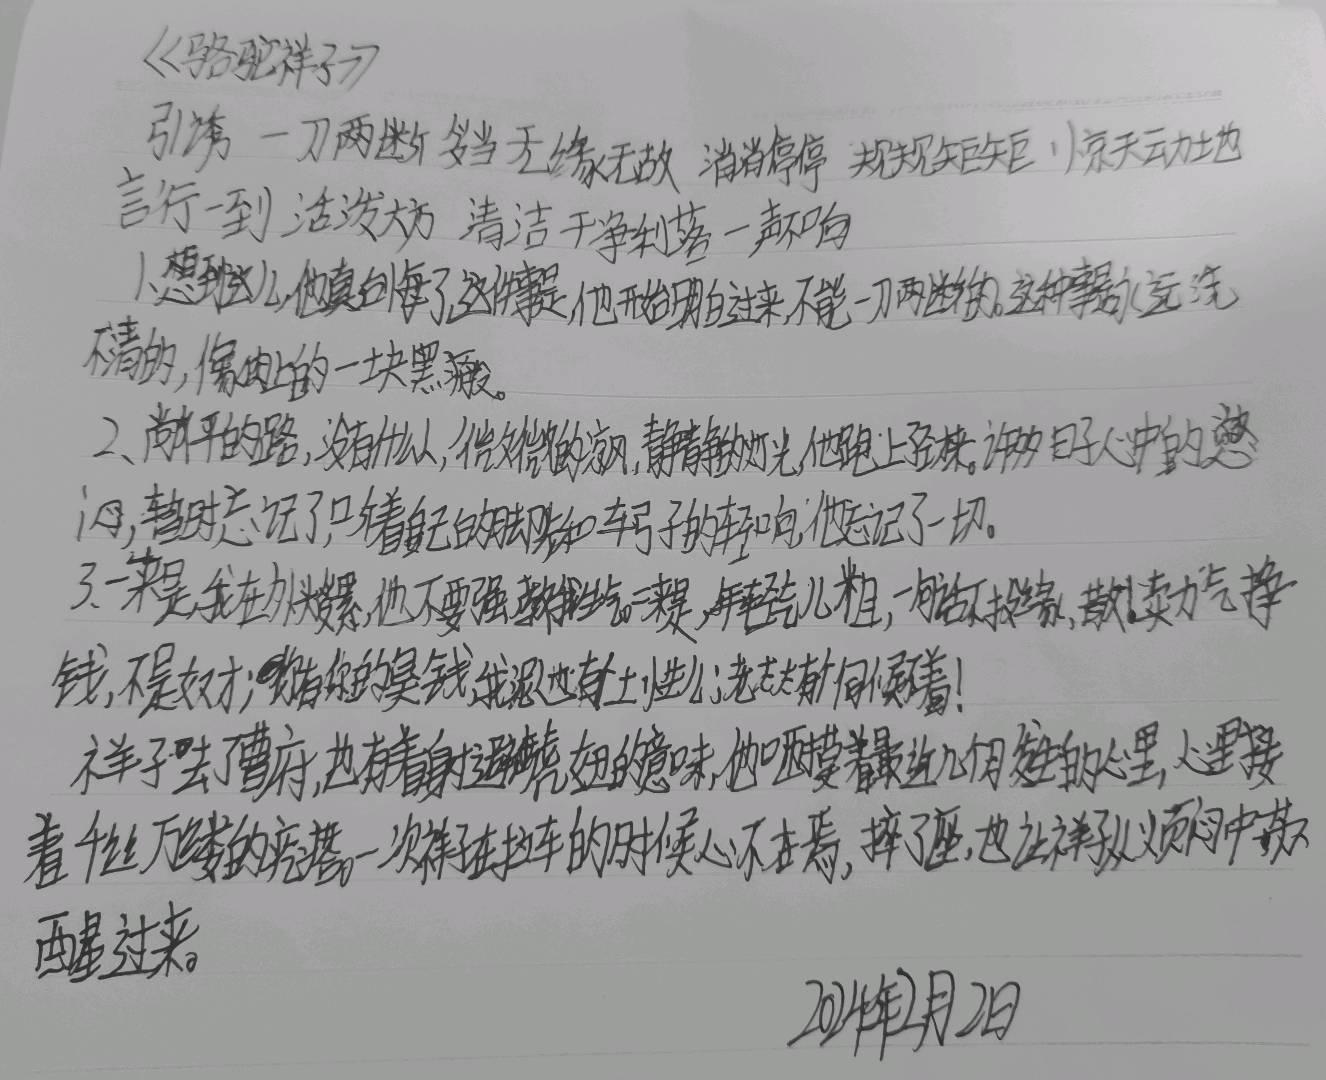 《骆驼祥子》
引诱 一刀两断 妥当 无缘无故 消消停停 规规矩矩 惊天动地
言行一到 活泼大方 清洁 干净利落 一声不响
1、想到这儿,他真后悔了,这件事是,他开始明白过来,不能一刀两断的。这种事是永远洗
不清的,像肉上的一块黑瘢。
2、尚平的路,没有什么人,微微的凉风,静静的灯光,他跑上了劲来。许多日子心中的憋
闷,暂时忘记了,只听着自己的脚步和车弓子的轻响,他忘记了一切。
3、一来是,我在外头,他不要强,教我生气。二来是,年轻气儿粗,一句话不投缘,散!卖力气挣
钱,不是奴才;你有你的臭钱,我泥人也有个土性儿;老太太有个伺候不着!
祥子去了曹府,也有着身躲避虎妞的意味,他咂摸着最近几个月发生的心里,心里接
着千丝万缕的疙瘩。一次祥子在拉车的时候心不在焉,摔了座,也让祥子从烦闷中
醒过来。
2024年2月2日